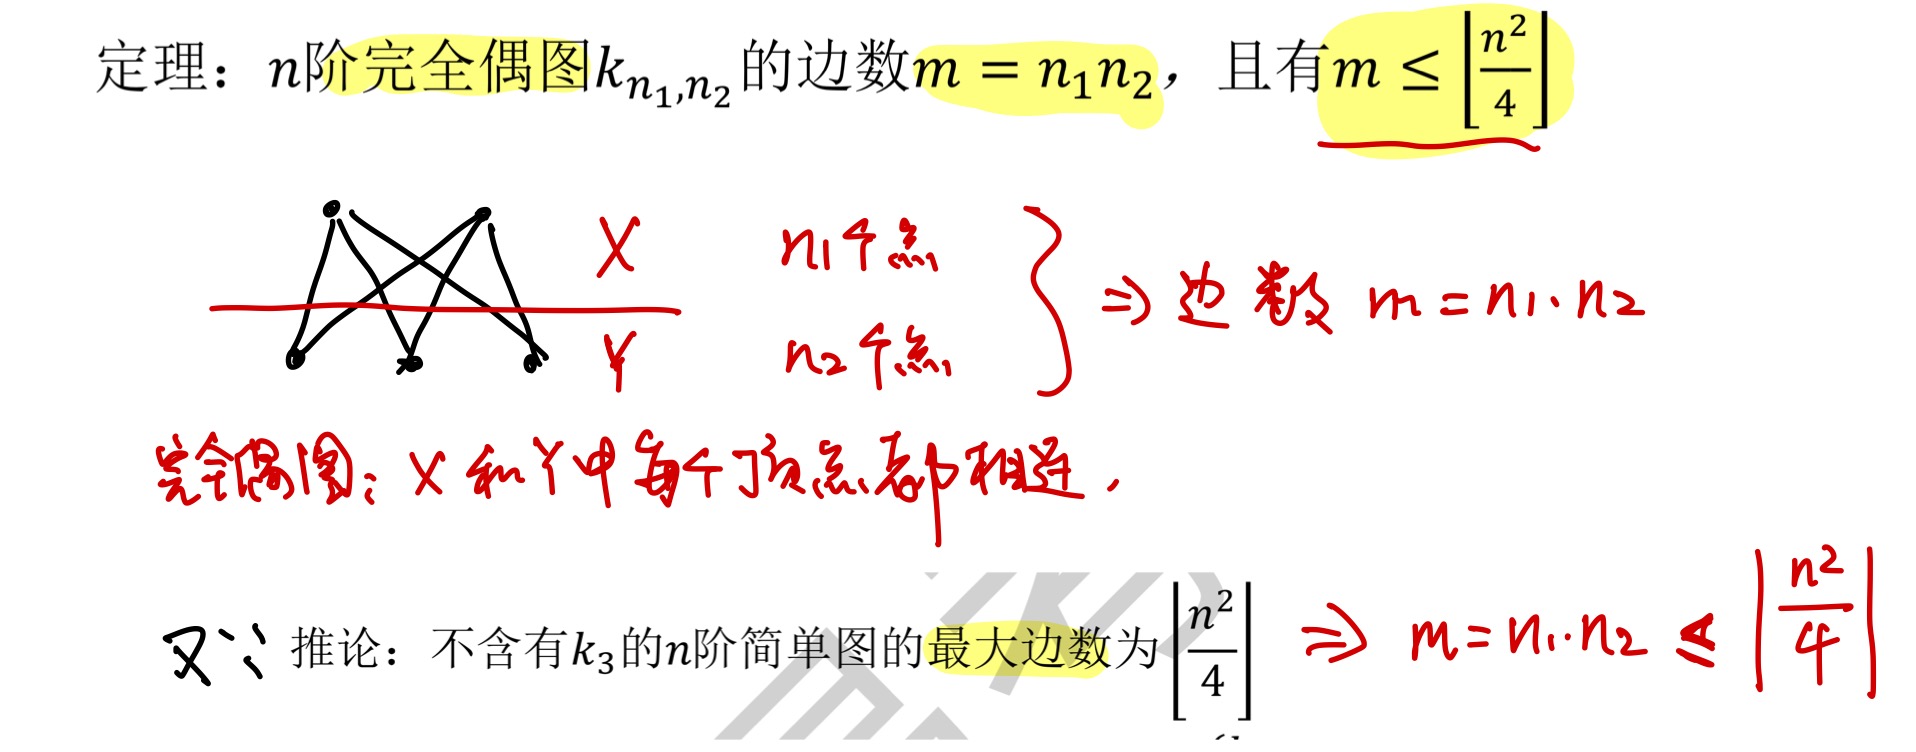 定理：n阶完全偶图k_{n₁,n₂}的边数m = n₁n₂，且有m ≤ ⌊n²/4⌋
X n1个点
⇒ 边数 m = n1·n2
Y n2个点
完全偶图：X和Y中每个顶点都相连.
又∵ 推论：不含有k₃的n阶简单图的最大边数为⌊n²/4⌋ ⇒ m = n1·n2 ≤ |n²/4|